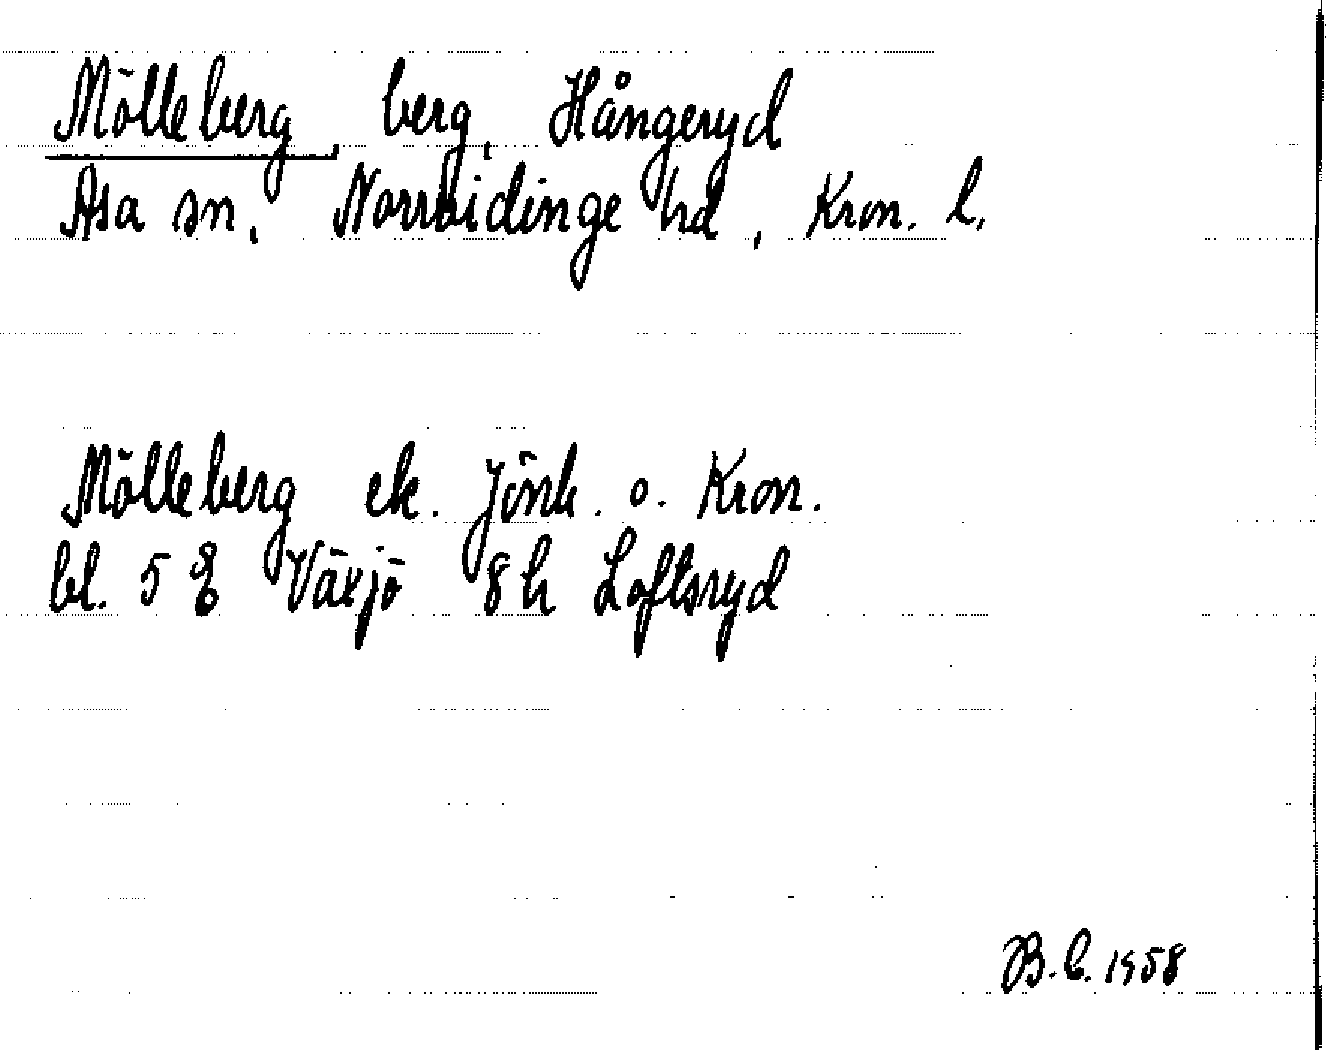 Mölleberg, berg, Hångeryd
Asa sn, Norrvidinge hd, Kron. l.
Mölleberg ek. Jönk. o. Kron.
bl. 5 E Växjö 8 h Loftsryd
B.C. 1958